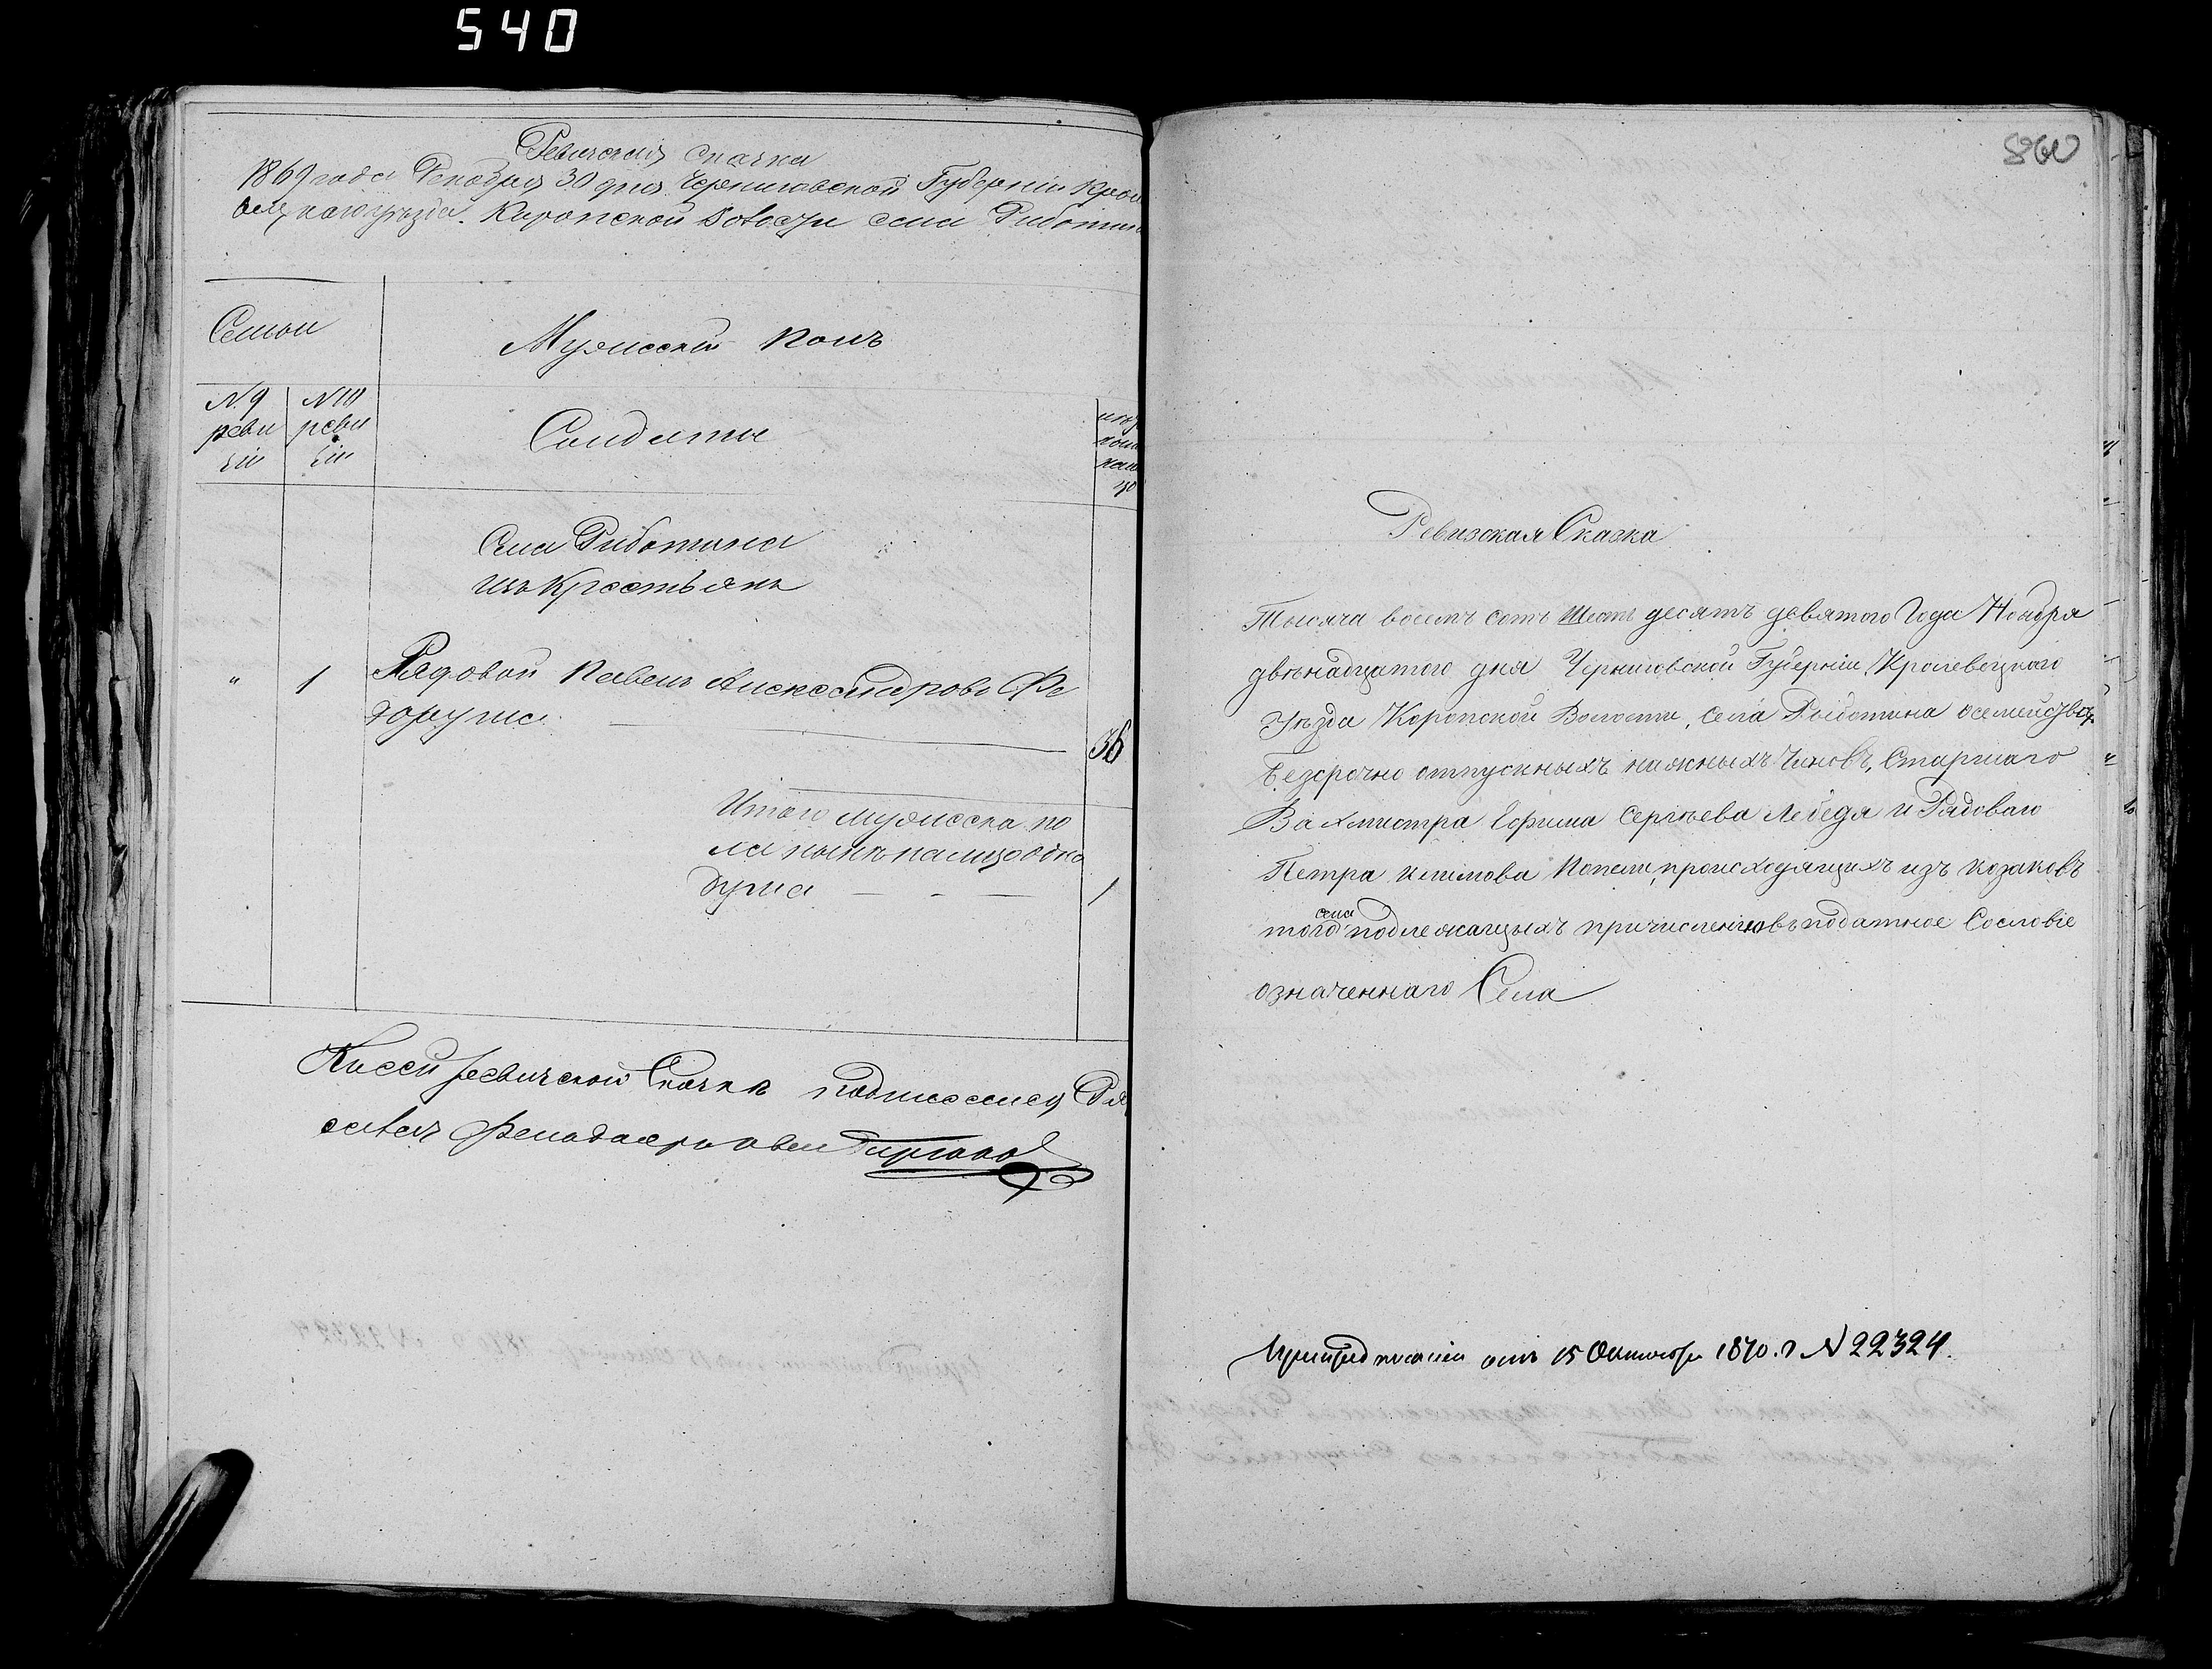 540
Ревизская сказка
1869 года Декабря 30 дня Черниговской Губерніи Крол
вецкаго уѣзда. Коропской Волости села Риботина
Семьи
Мужескій полъ
N 9 реви зіи
N 10 реви зіи
Солдаты
Села Риботина
изъ Крестьянъ
" 1 Рядовой Павелъ Александровъ Фе
36
Итого мужеска по
ла нынѣ налицо одна
душа — - — 1
Къ сей ревизской Сказкѣ подписался
860
Ревизская Сказка
Тысяча восемъ сотъ Шесть десятъ девятого Года Ноября
двѣнадцатого дня Черниговской Губерніи, Кролевецкаго
Уѣзда Коропской Волости, села Рыботина осемейств
Безсрочно отпускныхъ нижныхъ Чиновъ, Старшаго
Вахмистра Ефима Сергѣева Лебедя и Рядоваго
Петра Климова Копели, происходящихъ изъ козаковъ
того села подлежащыхъ причисленію въ податное Сословіе
означеннаго Села
При предписаніи отъ 15 Октября 1870. г N 22324.